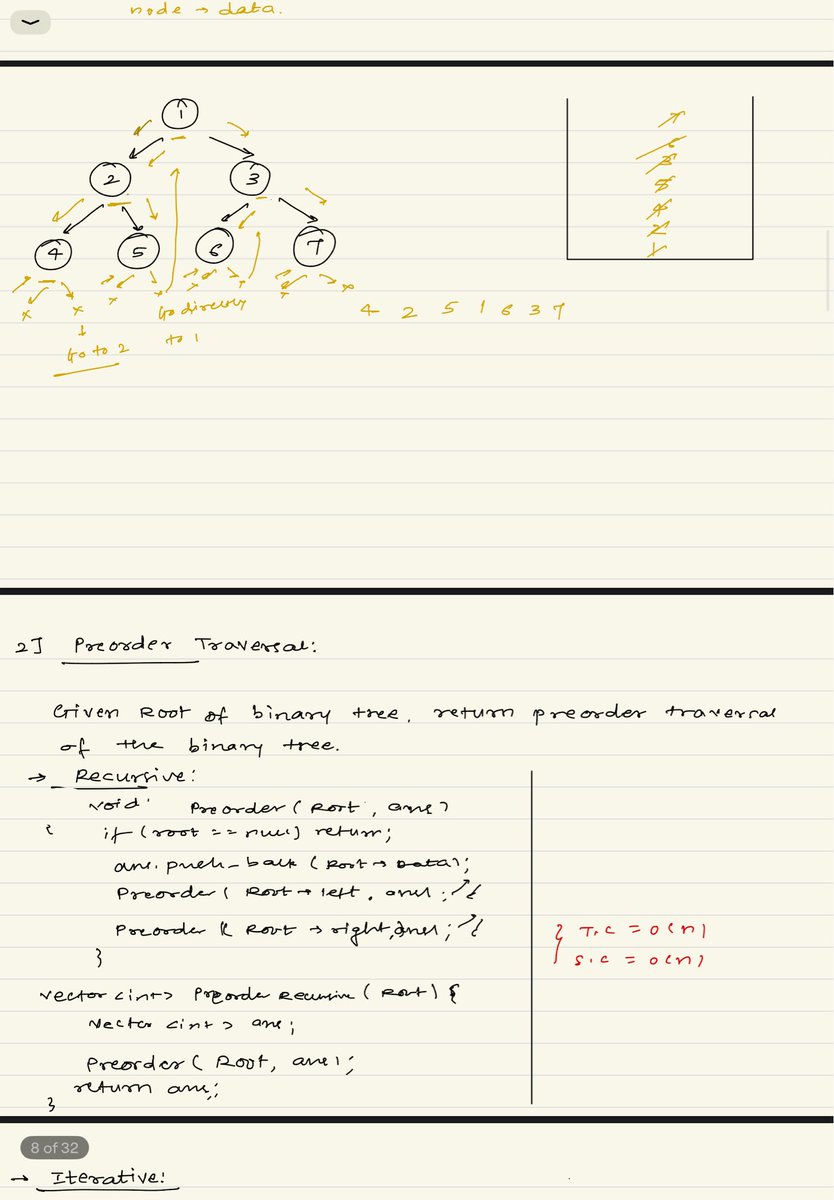 node → data.
1
2 3
4 5 6 7
x x x x x x x x
Go directly
to 1
↓
Go to 2
7
6
3
5
4
2
1
4 2 5 1 6 3 7
2] Preorder Traversal:
Given Root of binary tree, return preorder traversal
of the binary tree.
→ Recursive:
void Preorder ( Root , ans )
{ if (root == null) return;
ans. push_back ( Root → Data);
Preorder ( Root → left , ans) ;
Preorder ( Root → right, ans) ;
}
} T.C = O(n)
S.C = O(n)
vector <int> Preorder Recursive ( Root ) {
vector <int> ans;
Preorder ( Root, ans);
return ans;
}
8 of 32
→ Iterative: